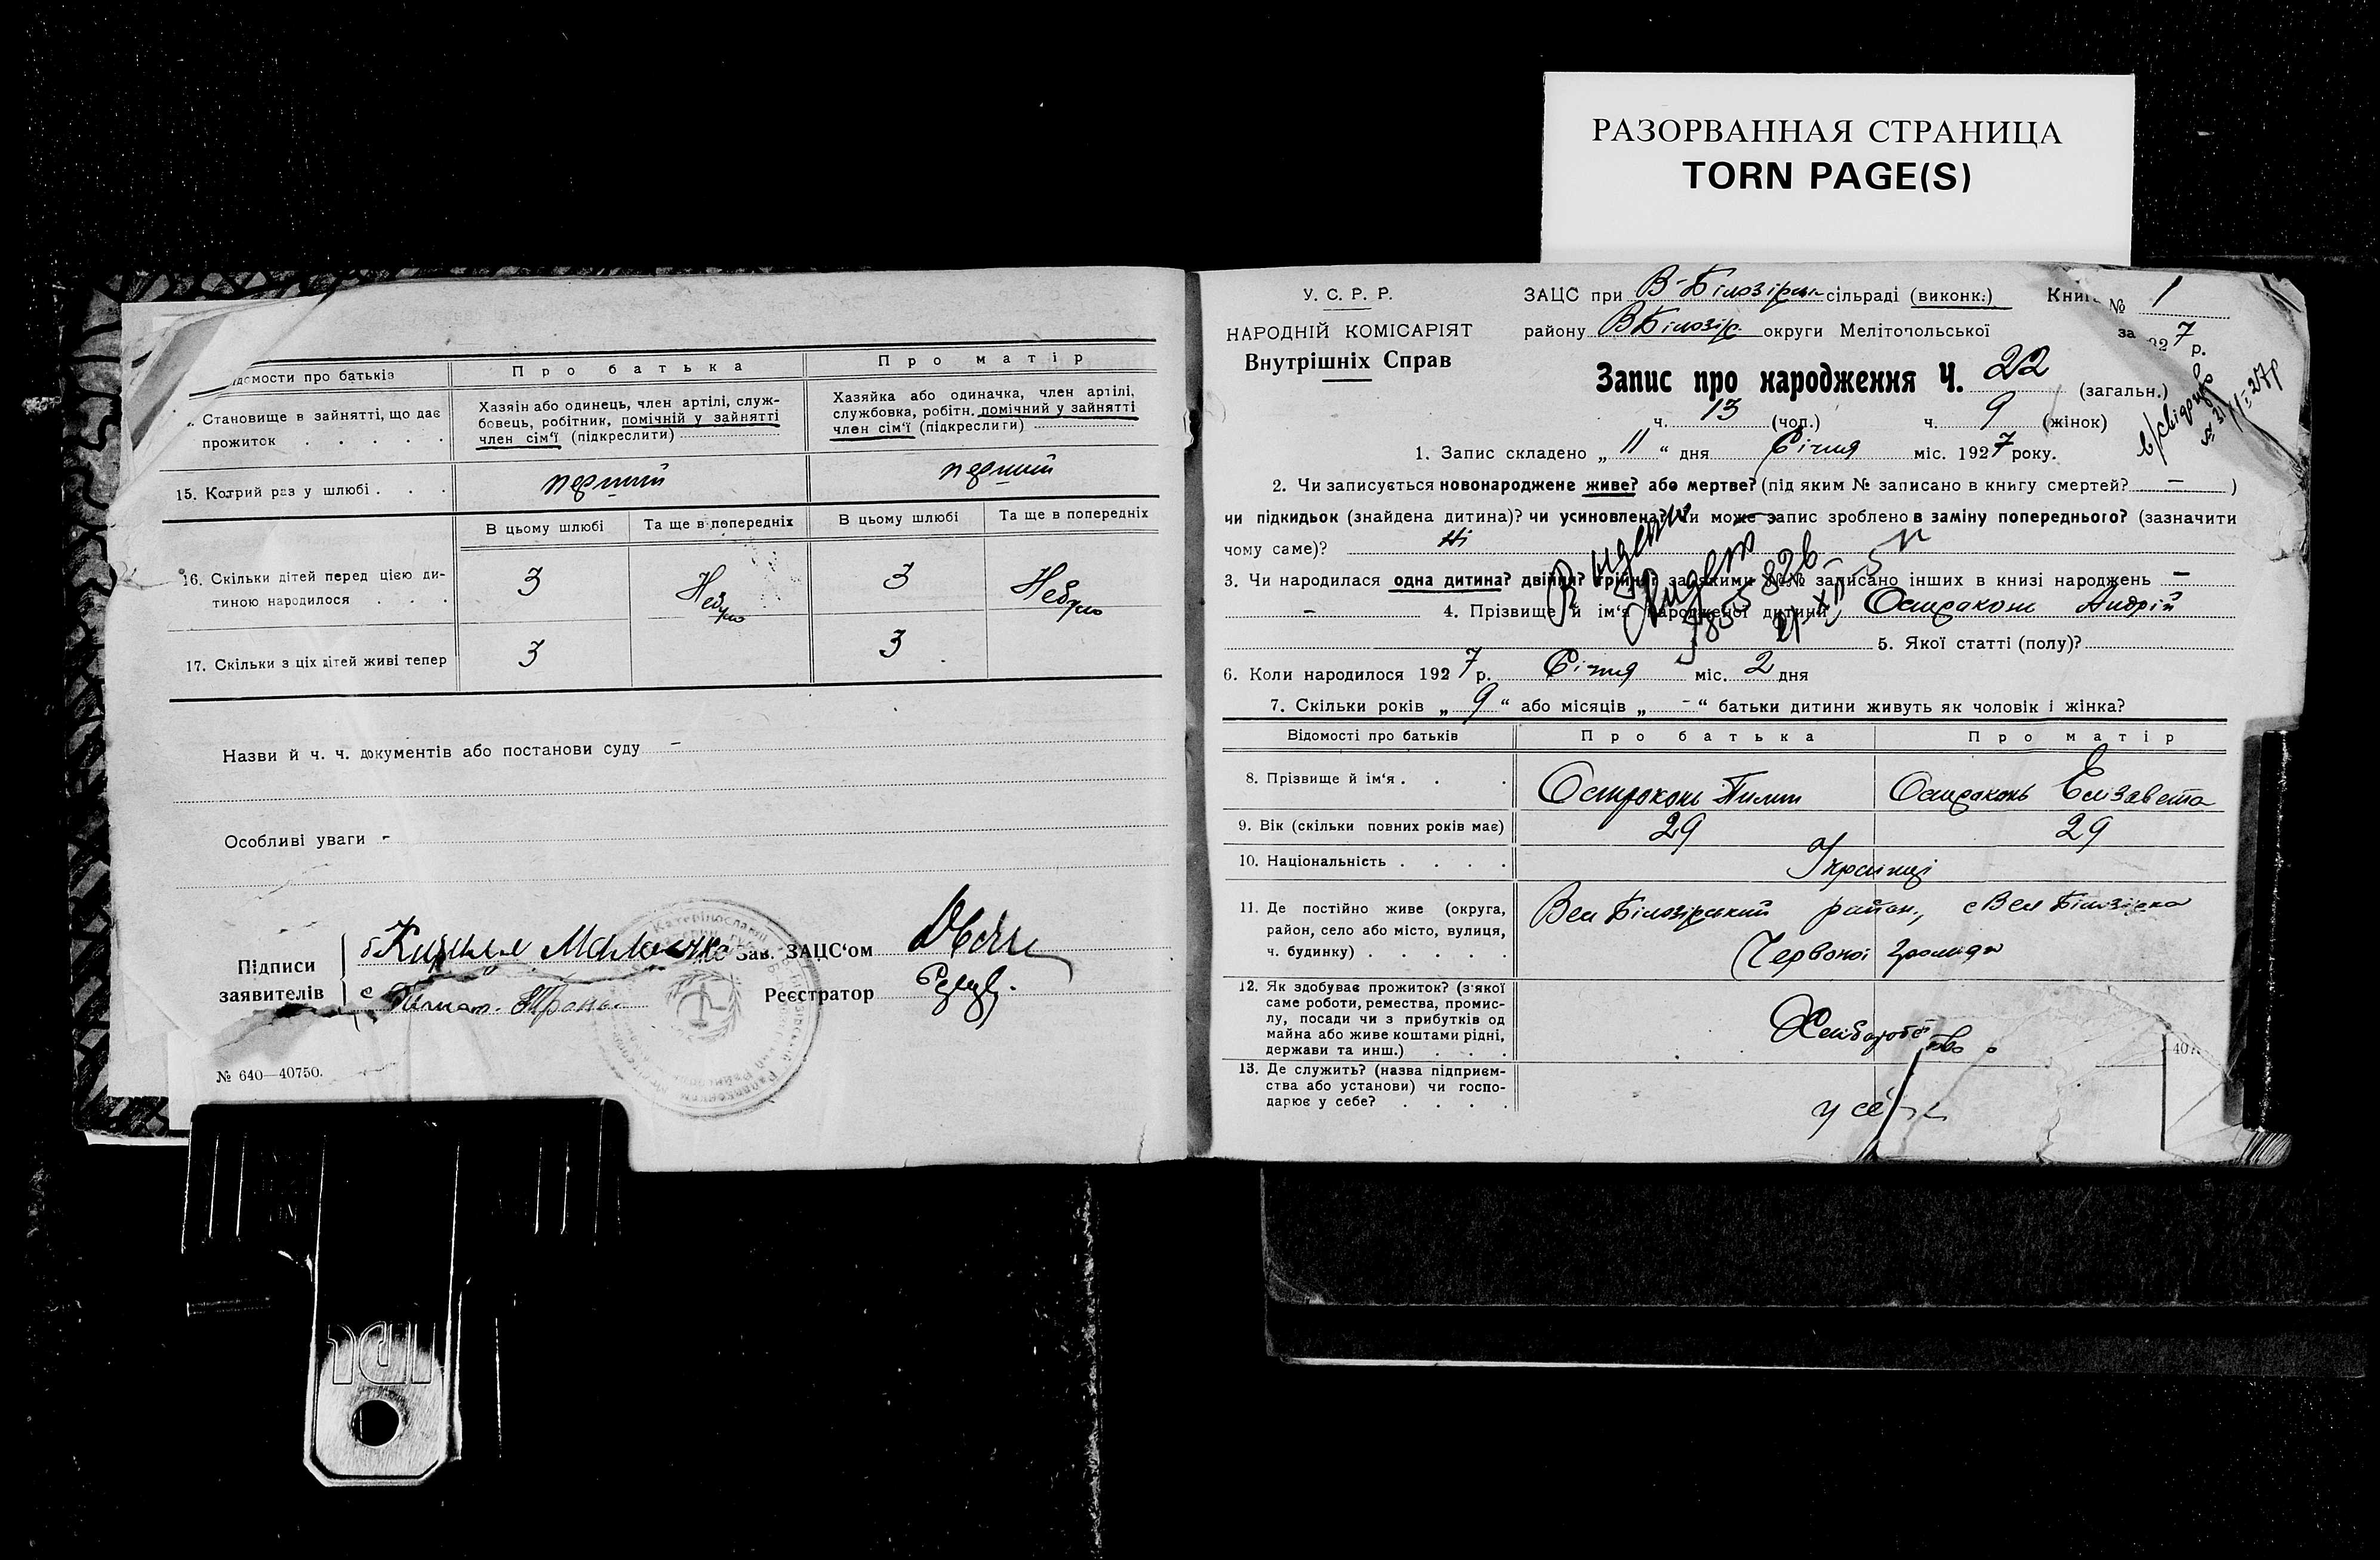 РАЗОРВАННАЯ СТРАНИЦА
TORN PAGE(S)
домости про батьків
Про батька
Про матір
Становище в зайнятті, що дає прожиток . . . . .
Хазяін або одинець, член артілі, служ-
бовець, робітник, помічній у зайнятті
член сім'ї (підкреслити)
Хазяйка або одиначка, член артілі,
службовка, робітн. помічний у зайнятті
член сім'ї (підкреслити)
15. Котрий раз у шлюбі . . .
перший
перший
В цьому шлюбі
Та ще в попередніх
В цьому шлюбі
Та ще в попередніх
16. Скільки дітей перед цією ди-
тиною народилося . . .
3
Не було
3
Не було
17. Скільки з ціх дітей живі тепер
3
3
Назви й ч. ч. документів або постанови суду -
Особливі уваги -
Підписи
заявителів
Зав. ЗАЦС'ом
Реєстратор
№ 640—40750.
У. С. Р. Р.
НАРОДНІЙ КОМІСАРІЯТ
Внутрішніх Справ
ЗАЦС при В-Білозірськ сільраді (виконк.)
Книг № 1
району В Білозір округи Меліточольської
за 927 р.
Запис про народження Ч. 22 (загальн.)
ч. 13 (чол.) ч. 9 (жінок)
1. Запис складено „ 11 “ дня Січня міс. 1927 року.
2. Чи записується новонароджене живе? або мертве? (під яким № записано в книгу смертей? — )
чи підкидьок (знайдена дитина)? чи усиновлена? Чи може запис зроблено в заміну попереднього? (зазначити
чому саме)? Ні
3. Чи народилася одна дитина? двійня? трійня? за якими №№ записано інших в книзі народжень —
- 4. Прізвище й ім'я народженої дитини Остроконь Андрій
5. Якої статті (полу)?
6. Коли народилося 1927 р. Січня міс. 2 дня
7. Скільки років „ 9 “ або місяців „ - “ батьки дитини живуть як чоловік і жінка?
Відомості про батьків
Про батька
Про матір
8. Прізвище й ім'я . . .
Остроконь Пилип
Остроконь Елізавета
9. Вік (скільки повних років має)
29
29
10. Національність . . . .
Українці
11. Де постійно живе (округа,
район, село або місто, вулиця,
ч. будинку) . . . . .
Вел Білозірський район, с Вел Білозірка
Червоної громади
12. Як здобуває прожиток? (з якої
саме роботи, ремества, промис-
лу, посади чи з прибутків од
майна або живе коштами рідні,
держави та инш.) . . .
Хліборобство
13. Де служить? (назва підприєм-
ства або установи) чи госпо-
дарює у себе? . . . .
у себе